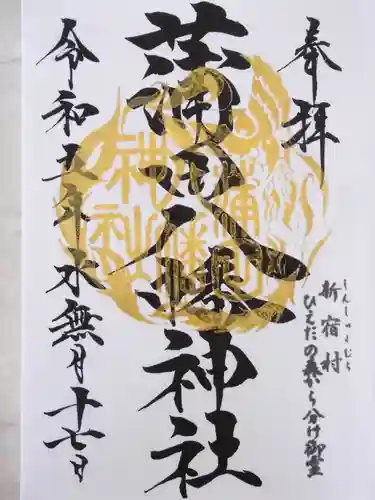 奉拝
しんしゅくむら
新宿村
ひえだの森から分け御霊
蒲田八幡神社
令和五年水無月十七日
蒲田八幡神社